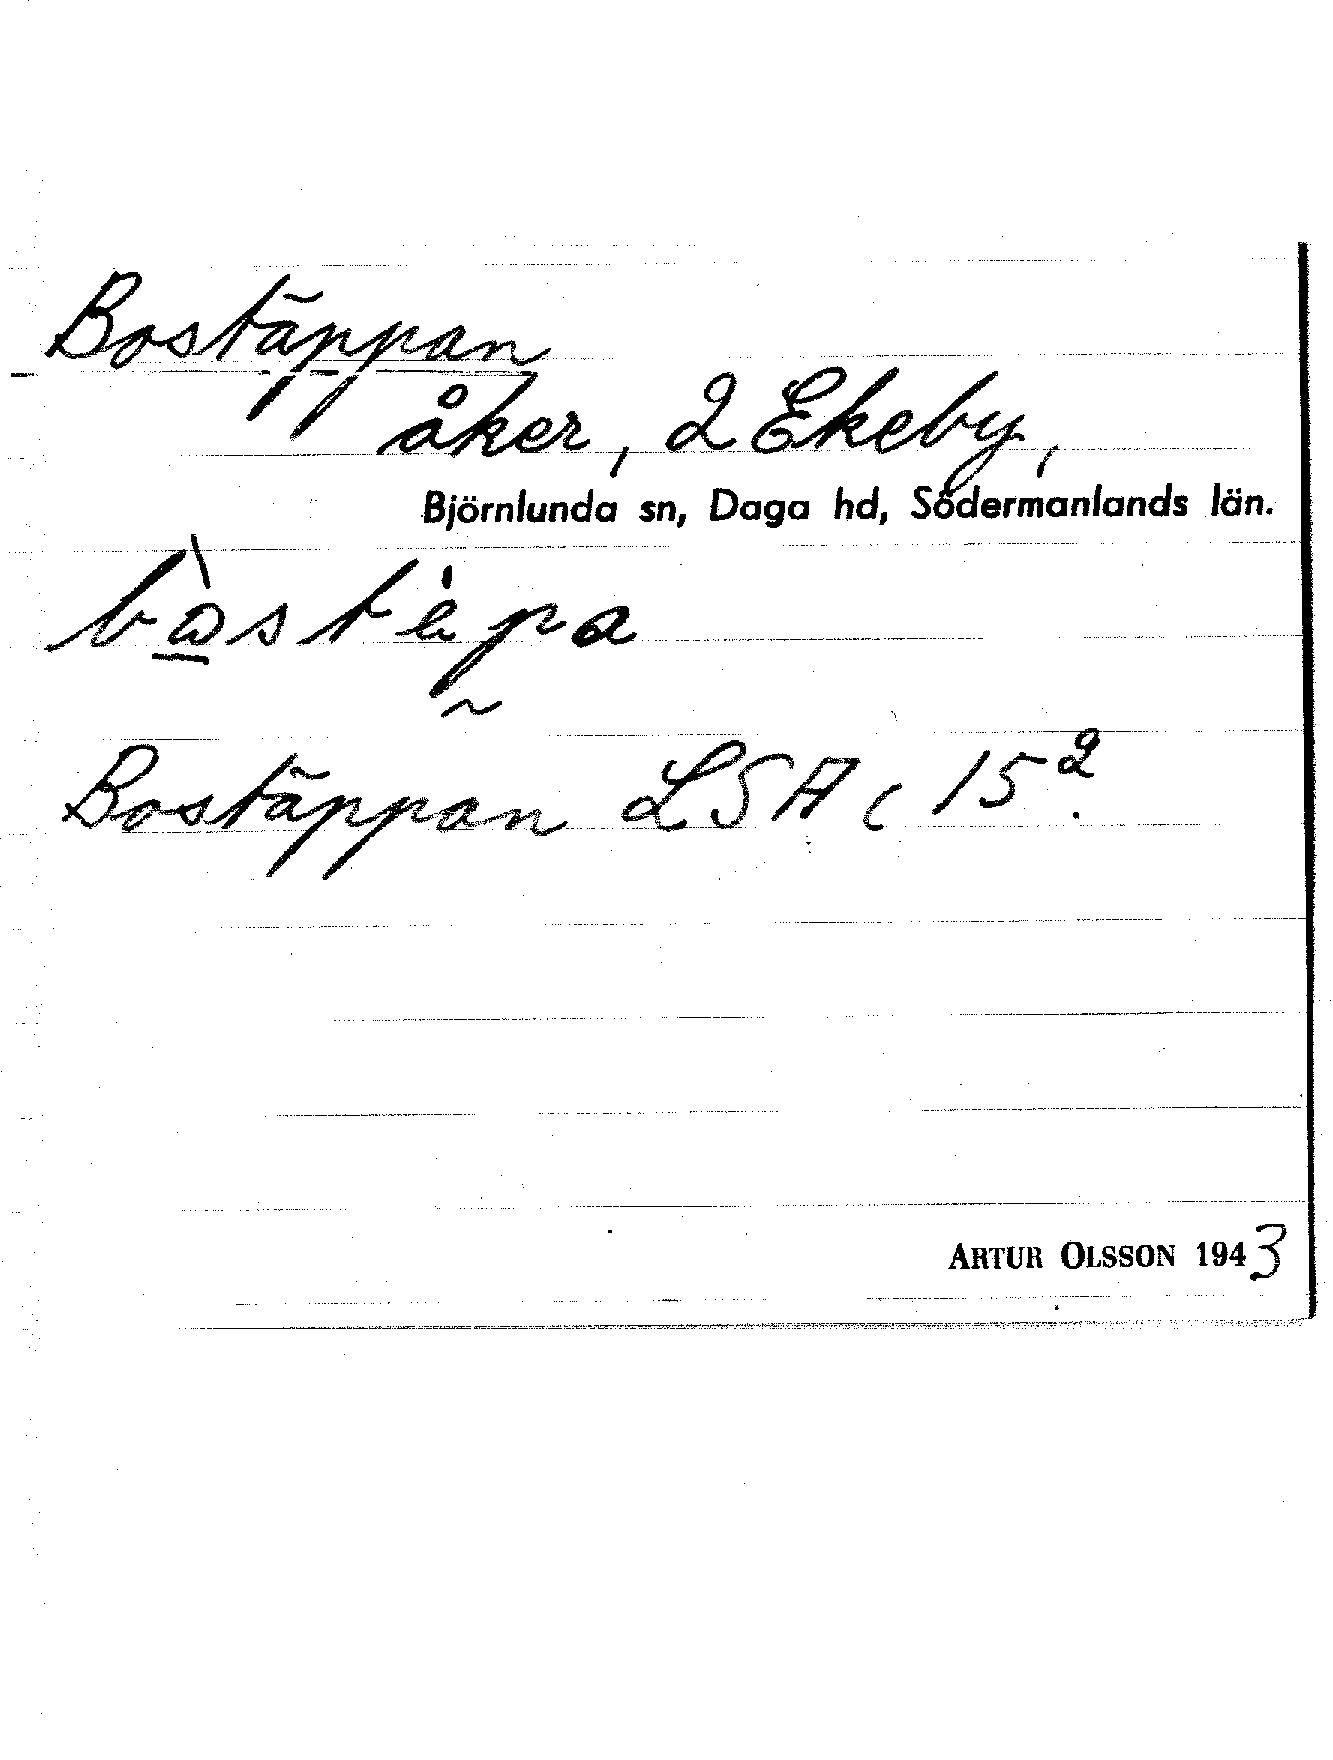 Bostäppan
åker, 2 Ekeby,
Björnlunda sn, Daga hd, Södermanlands län.
Bostäppan LSA C 15²
ARTUR OLSSON 1943